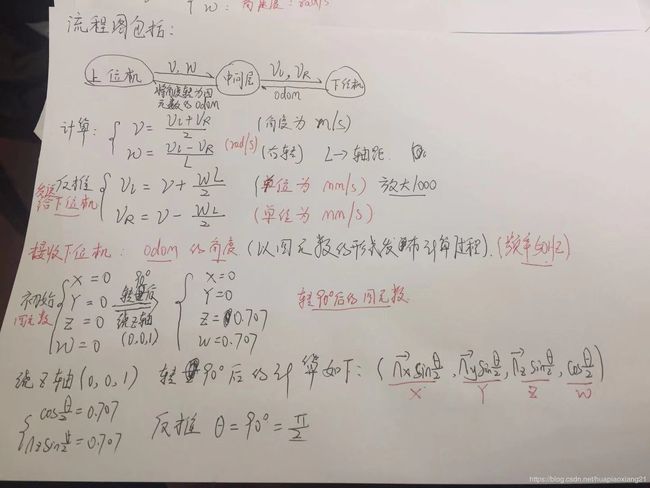 W: 角速度: rad/s
流程图包括:
上位机 V, W 中间层 VL, VR 下位机
将角度转为四元数的odom odom
计算: { V = (VL+VR)/2 (角度为 m/s)
W = (VL-VR)/L (rad/s) (右转) L→轴距.
发送给下位机 反推 { VL = V + WL/2 (单位为 mm/s) 放大1000
VR = V - WL/2 (单位为 mm/s)
接收下位机: odom的角度 (以四元数的形式发布计算过程). (频率50HZ)
初始四元数 { X=0 Y=0 Z=0 W=0 90° 转后 绕Z轴 (0,0,1) { X=0 Y=0 Z=0.707 W=0.707 转90°后的四元数
绕Z轴(0,0,1) 转90°后的计算如下: (nx sin θ/2, ny sin θ/2, nz sin θ/2, cos θ/2)
X Y Z W
{ cos θ/2 = 0.707
nz sin θ/2 = 0.707 反推 θ = 90° = π/2
https://blog.csdn.net/huapiaoxiang21